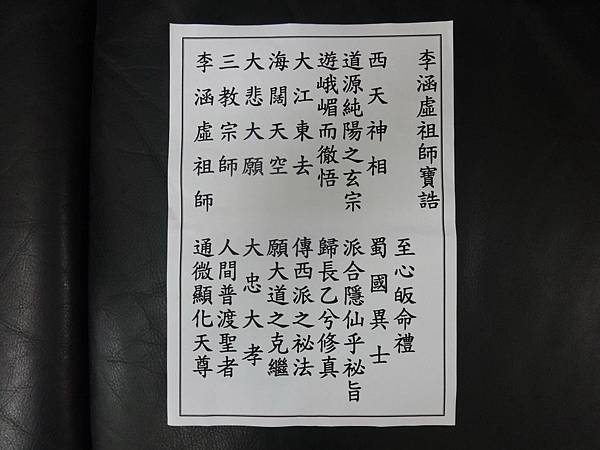 李涵虛祖師寶誥
至心皈命禮
西天神相 蜀國異士
道源純陽之玄宗 派合隱仙乎祕旨
遊峨嵋而徹悟 歸長乙兮修真
大江東去 傳西派之祕法
海闊天空 願大道之克繼
大悲大願 大忠大孝
三教宗師 人間普渡聖者
李涵虛祖師 通微顯化天尊